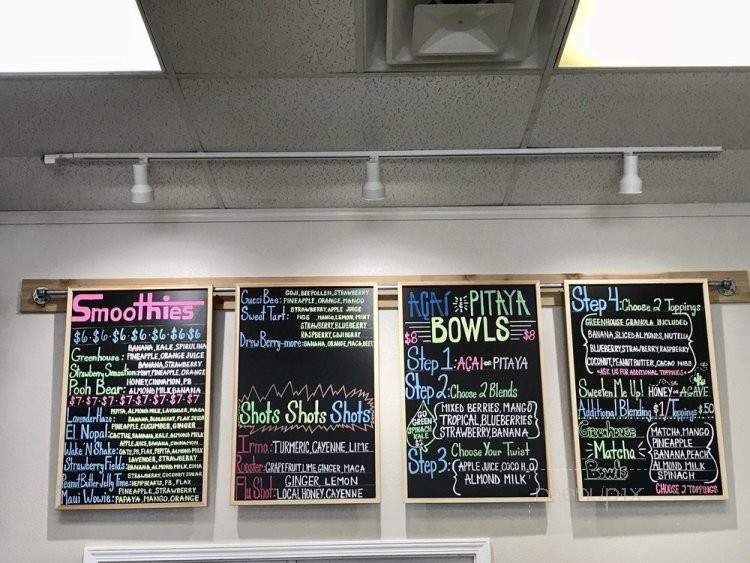 Smoothies
$6·$6·$6·$6·$6·$6·$6
BANANA, KALE, SPIRULINA
Greenhouse: PINEAPPLE, ORANGE JUICE
BANANA, STRAWBERRY
Strawberry Sensation: MINT, PINEAPPLE, ORANGE
HONEY, CINNAMON, PB
Pooh Bear: ALMOND MILK, BANANA
$7·$7·$7·$7·$7·$7·$7·$7·$7
PEPITA, ALMOND MILK, LAVENDER, MACA
Lavender Haze:
PINEAPPLE, CUCUMBER, GINGER
El Nopal: CACTUS, BANANA, KALE, ALMOND MILK
APPLE JUICE, BANANA, CINNAMON
Wake N Shake: OATS, PB, FLAX, PEPITA, ALMOND MILK
LAVENDER, STRAWBERRY
Strawberry Fields: BANANA, ALMOND MILK, CHIA
Peanut Butter Jelly Time: HEMP HEARTS, PB, FLAX
PINEAPPLE, STRAWBERRY
Maui Wowie: PAPAYA, MANGO, ORANGE
GOJI, BEE POLLEN, STRAWBERRY
Gucci Bee: PINEAPPLE, ORANGE, MANGO
Sweet Tart: STRAWBERRY, APPLE JUICE
FIGS, MANGO, LEMON, MINT
STRAWBERRY, BLUEBERRY
RASPBERRY, GOJI BERRY
Drew Berry-more: BANANA, ORANGE, MACA, BEET
Shots Shots Shots
Irma: TURMERIC, CAYENNE, LIME
Rooster: GRAPEFRUIT, LIME, GINGER, MACA
GINGER, LEMON
Flu Shot: LOCAL HONEY, CAYENNE
AÇAÍ PITAYA
BOWLS
$8 $8
Step 1: AÇAI OR PITAYA
Step 2: Choose 2 Blends
GO GREEN SPINACH KALE
MIXED BERRIES, MANGO
TROPICAL, BLUEBERRIES
STRAWBERRY, BANANA
Step 3: Choose Your Twist
APPLE JUICE, COCO H2O
ALMOND MILK
Step 4: Choose 2 Toppings
GREENHOUSE GRANOLA INCLUDED
BANANA, SLICED ALMONDS, NUTELLA
BLUEBERRY, STRAWBERRY, RASPBERRY
COCONUT, PEANUT BUTTER, CACAO NIBS
*ASK US FOR ADDITIONAL TOPPINGS*
Sweeten Me Up! HONEY OR AGAVE
Additional Blending $1/Toppings $.50
Greenhouse
Matcha
Bowls
MATCHA, MANGO
PINEAPPLE
BANANA, PEACH
ALMOND MILK
SPINACH
CHOOSE 2 TOPPINGS